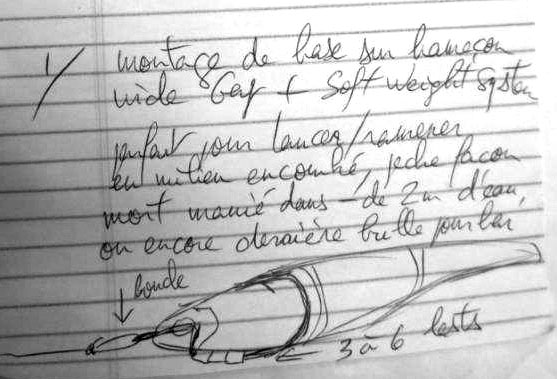 1/ montage de base sur hameçon
wide Gap + Soft Weight System
parfait pour lancer/ramener
en milieu encombré, peche facon
mort manié dans - de 2m d'eau,
ou encore derrière bulle pour bar,
boucle
3 à 6 lests